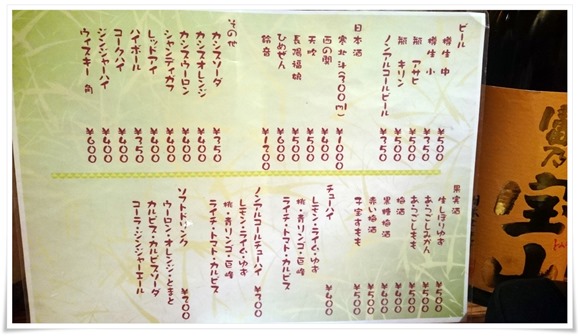 ビール
樽生 中 ¥500
樽生 小 ¥350
瓶 アサヒ ¥500
瓶 キリン ¥500
ノンアルコールビール ¥350
日本酒
寒北斗(300ml) ¥1000
西の関 ¥400
天吹 ¥500
長陽福娘 ¥500
ひめぜん ¥600
鈴音 ¥1200
その他
カシスソーダ ¥350
カシスオレンジ ¥400
カシスウーロン ¥400
シャンディガフ ¥400
レッドアイ ¥400
ハイボール ¥350
コークハイ ¥400
ジンジャーハイ ¥400
ウイスキー 角 ¥600
果実酒
生しぼりゆず ¥500
あらごしみかん ¥500
あらごしもも ¥500
梅酒 ¥400
黒糖梅酒 ¥400
赤い梅酒 ¥500
子宝すもも ¥500
チューハイ ¥400
レモン・ライム・ゆず
桃・青リンゴ・巨峰
ライチ・トマト・カルピス
ノンアルコールチューハイ ¥300
レモン・ライム・ゆず
桃・青リンゴ・巨峰
ライチ・トマト・カルピス
ソフトドリンク ¥200
ウーロン・オレンジ・とまと
カルピス・カルピスソーダ
コーラ・ジンジャーエール
宝山